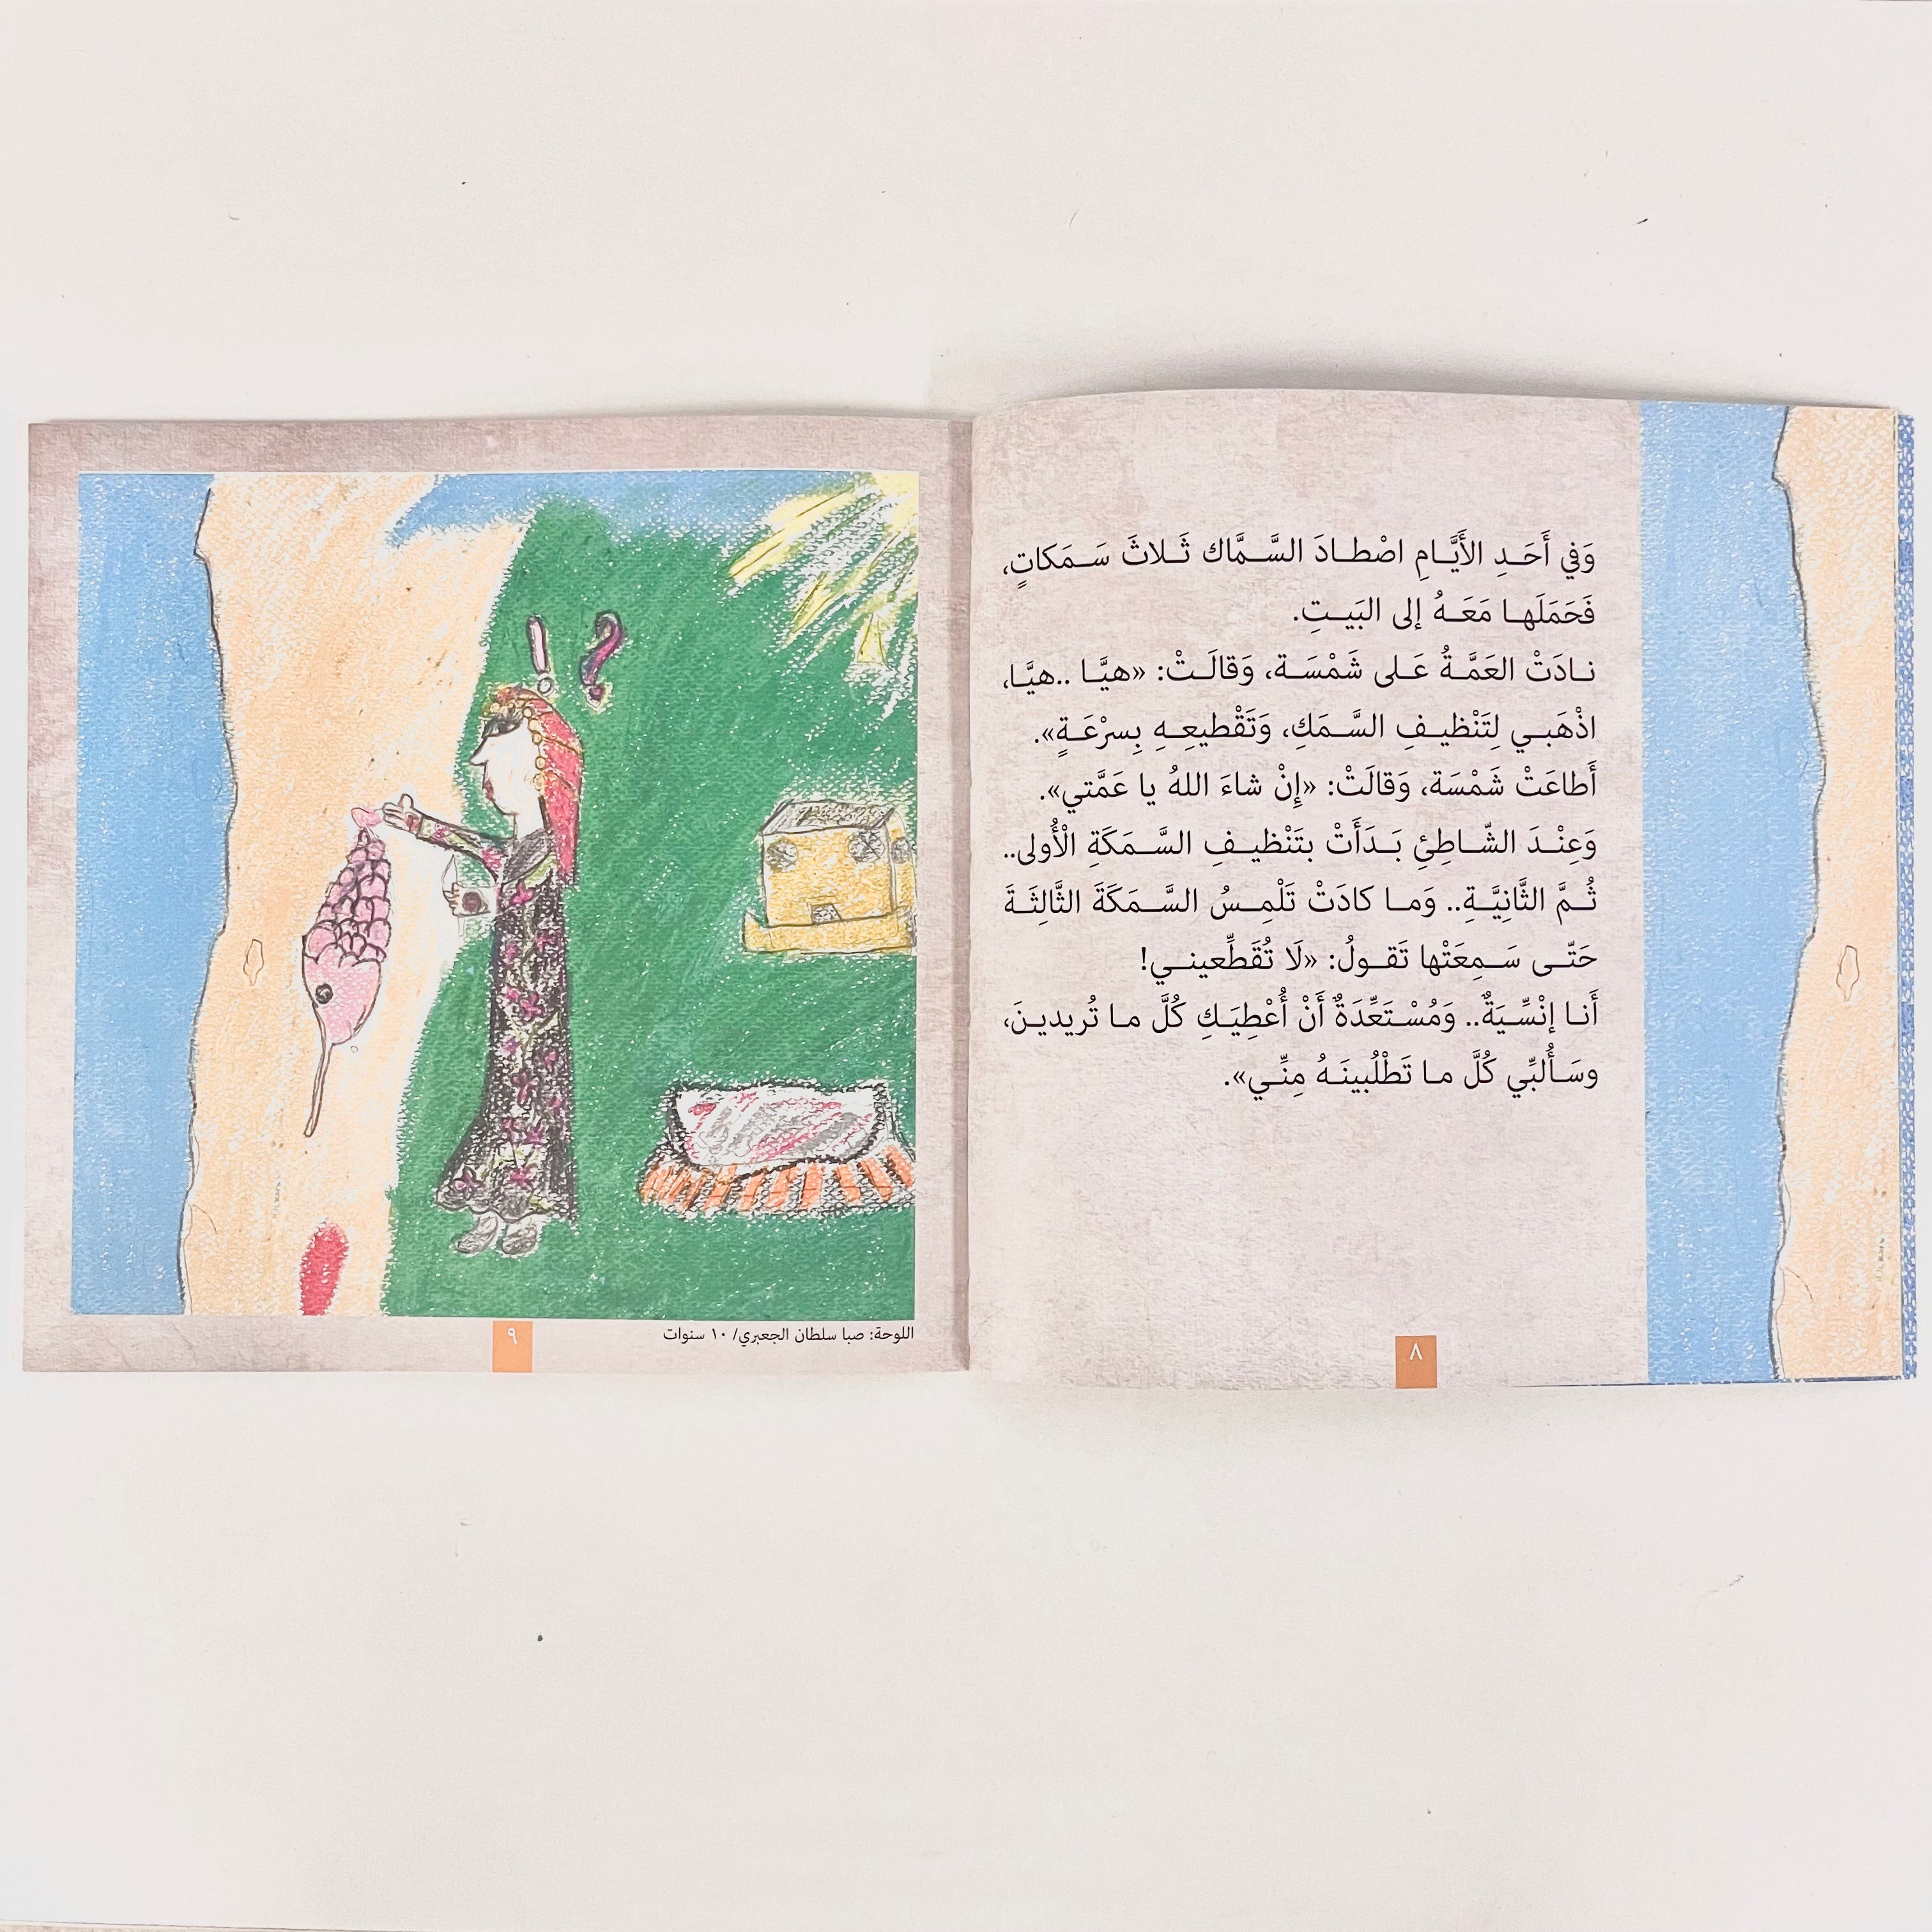 وَفي أَحَدِ الأَيَّامِ اصْطادَ السَّمَّاك ثَلاثَ سَمَكاتٍ،
فَحَمَلَها مَعَهُ إلى البَيتِ.
نادَتْ العَمَّةُ عَلى شَمْسَة، وَقالَتْ: «هيَّا ..هيَّا،
اذْهَبي لِتَنْظيفِ السَّمَكِ، وَتَقْطيعِهِ بِسرْعَةٍ».
أَطاعَتْ شَمْسَة، وَقالَتْ: «إِنْ شاءَ اللهُ يا عَمَّتي».
وَعِنْدَ الشّاطِئِ بَدَأَتْ بتَنْظيفِ السَّمَكَةِ الْأُولى..
ثُمَّ الثَّانِيَّةِ.. وَما كادَتْ تَلْمِسُ السَّمَكَةَ الثَّالِثَةَ
حَتّى سَمِعَتْها تَقولُ: «لَا تُقَطِّعيني!
أَنا إنْسِّيَةٌ.. وَمُسْتَعِّدَةٌ أَنْ أُعْطِيَكِ كُلَّ ما تُريدينَ،
وسَأُلبِّي كُلَّ ما تَطْلُبينَهُ مِنِّي».
٨
اللوحة: صبا سلطان الجعبري/ ١٠ سنوات
٩